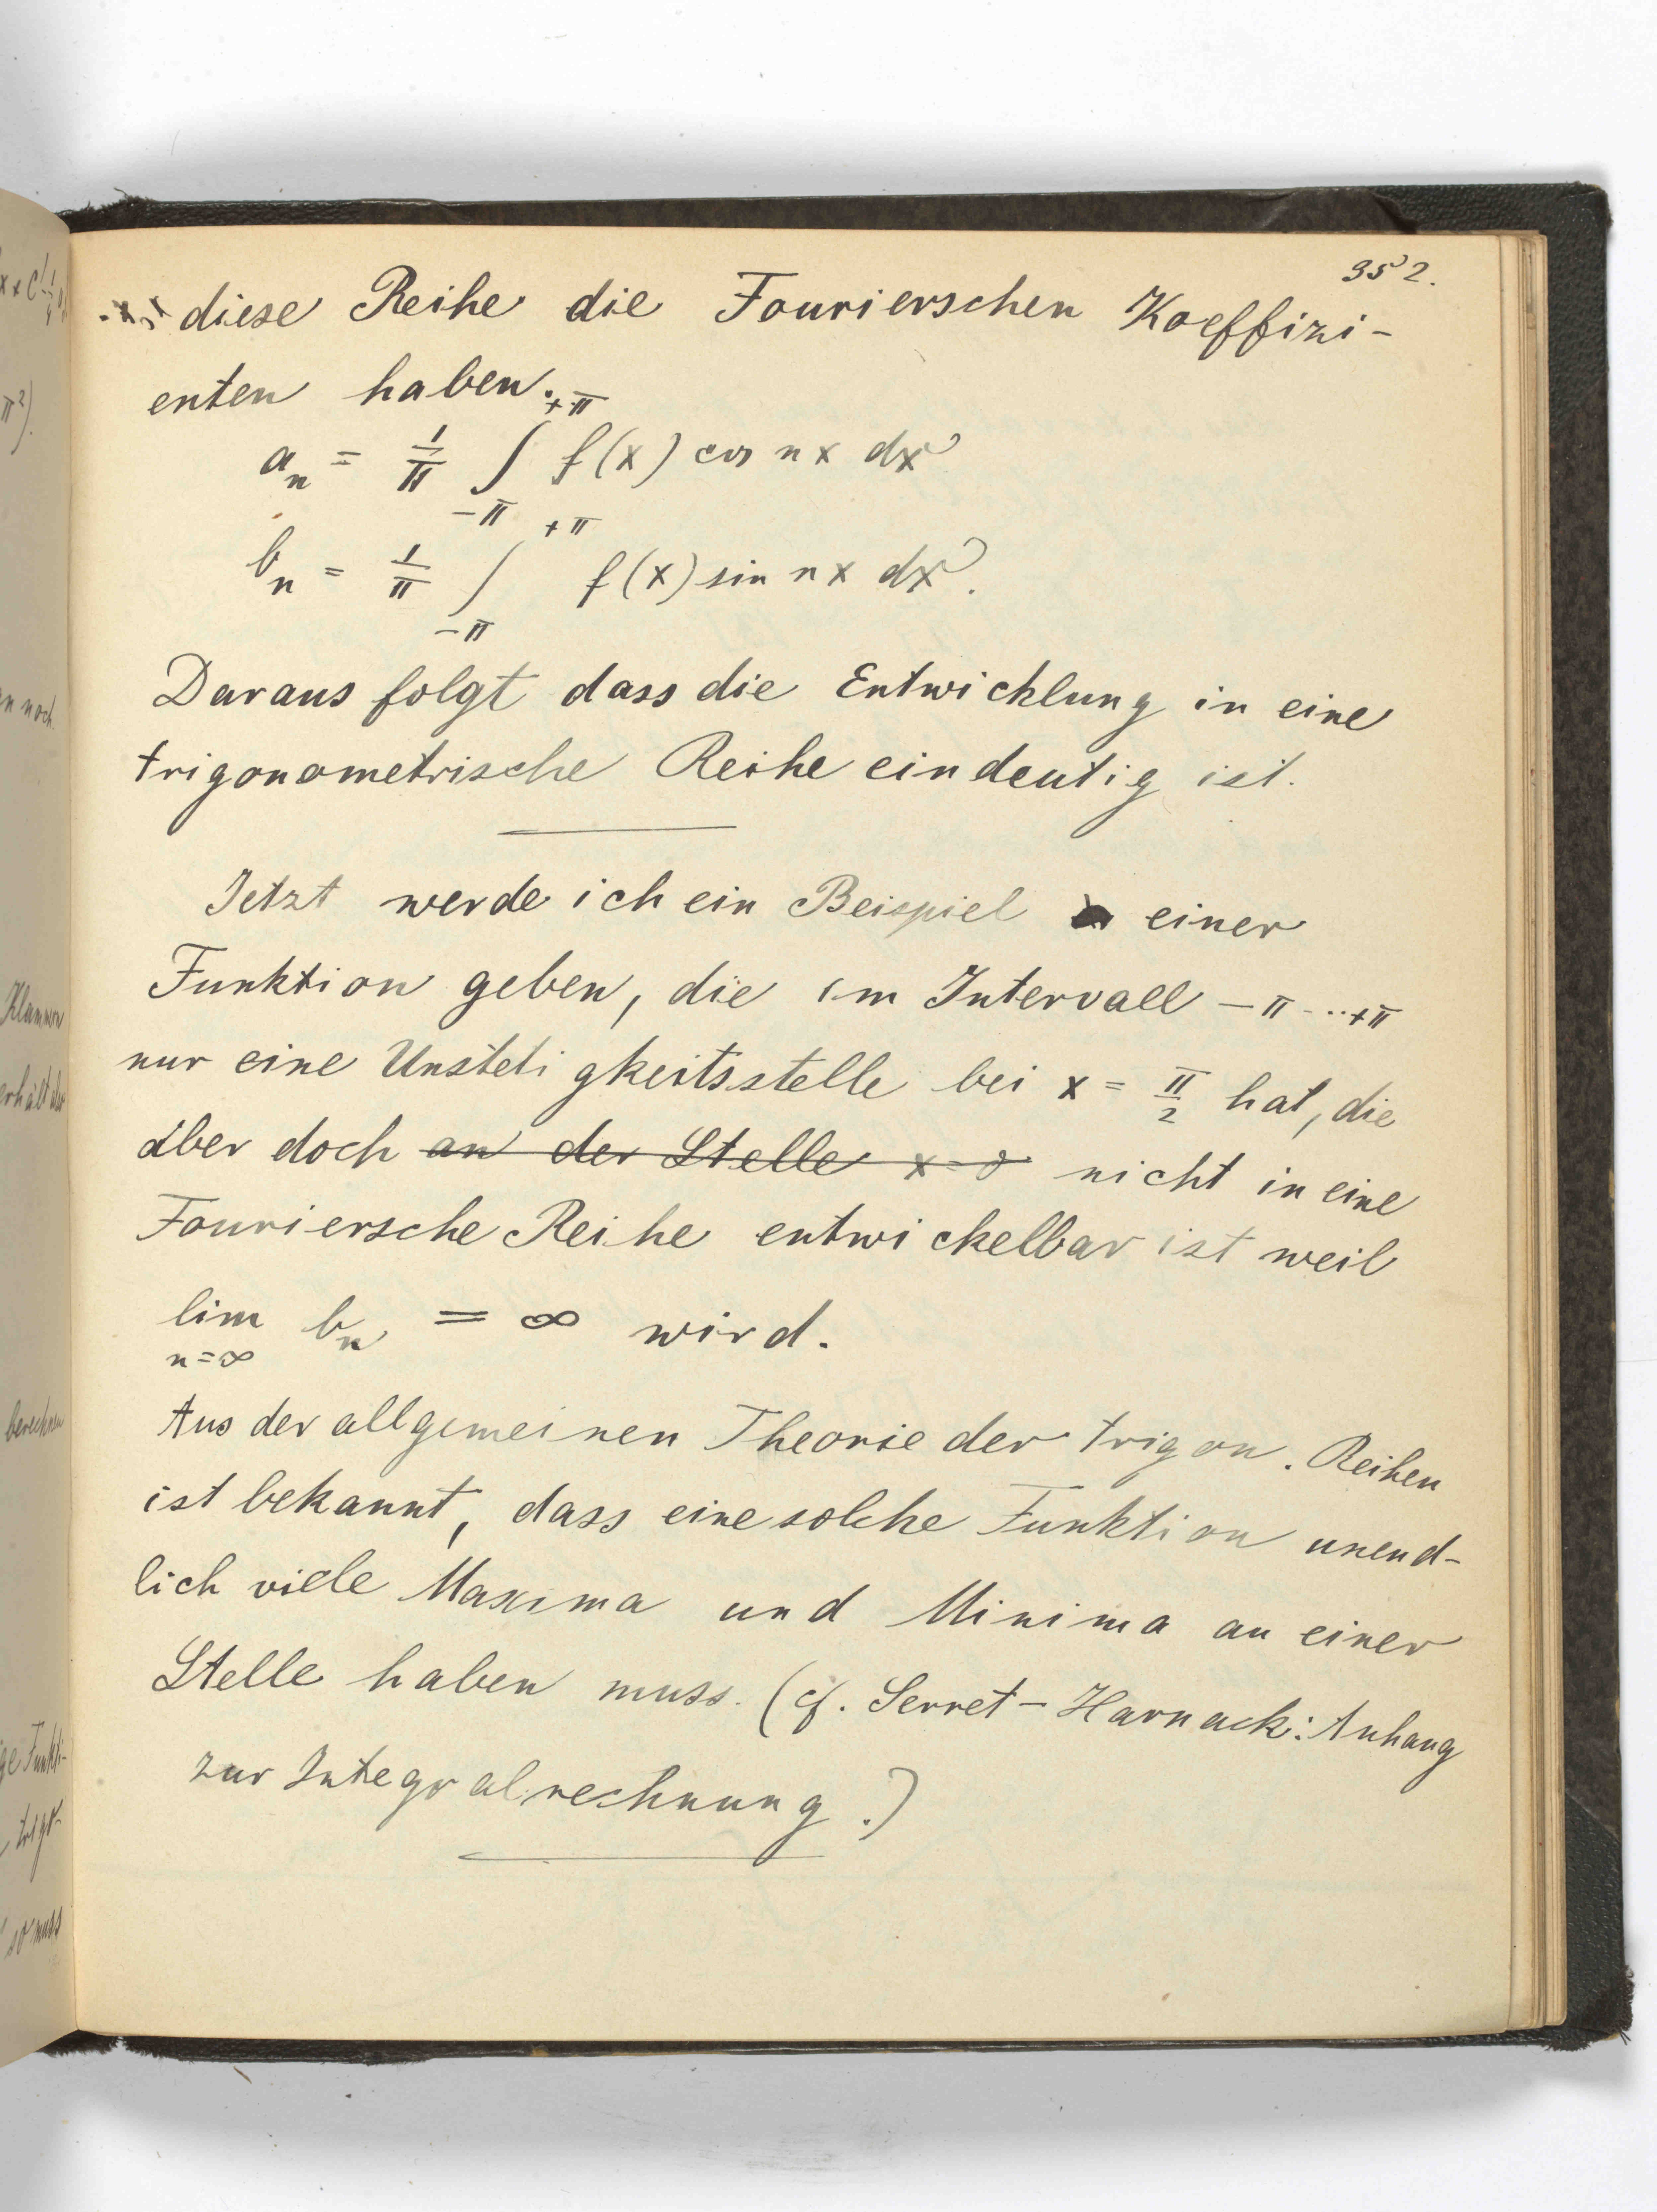 352.
diese Reihe die Fourierschen Koeffizi-
enten haben.
a_n = 1/π ∫_{-π}^{+π} f(x) cos nx dx
b_n = 1/π ∫_{-π}^{+π} f(x) sin nx dx.
Daraus folgt dass die Entwicklung in eine
trigonometrische Reihe eindeutig ist.
Jetzt werde ich ein Beispiel einer
Funktion geben, die im Intervall -π...+π
nur eine Unstetigkeitsstelle bei x = π/2 hat, die
aber doch an der Stelle x=0 nicht in eine
Fouriersche Reihe entwickelbar ist weil
lim_{n=∞} b_n = ∞ wird.
Aus der allgemeinen Theorie der trigon. Reihen
ist bekannt, dass eine solche Funktion unend-
lich viele Maxima und Minima an einer
Stelle haben muss. (cf. Serret-Harnack: Anhang
zur Integralrechnung.)
n noch
Klammern
erhält
berechnen
so muss